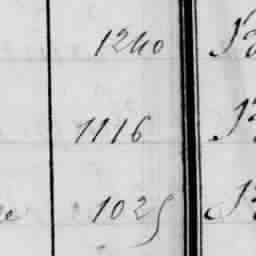 1240
1116
1025